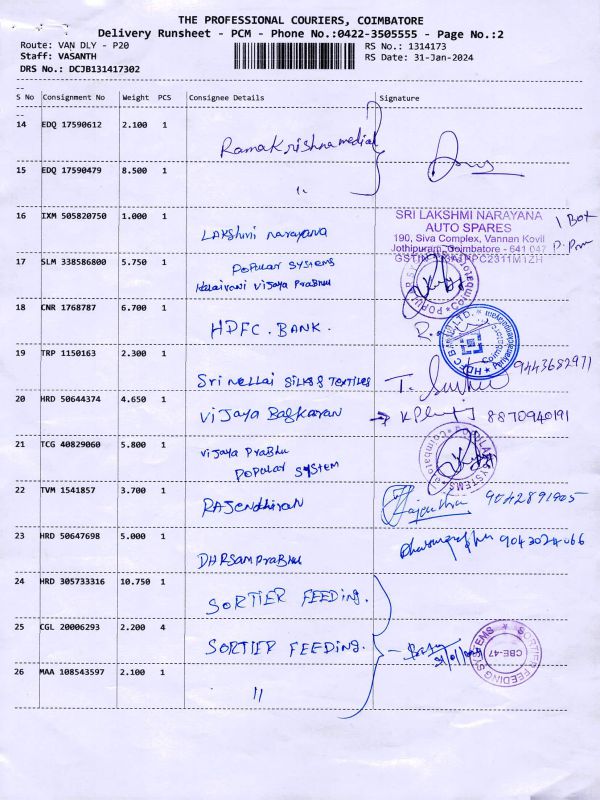 THE PROFESSIONAL COURIERS, COIMBATORE
Delivery Runsheet - PCM - Phone No.:0422-3505555 - Page No.:2
Route: VAN DLY - P20
RS No.: 1314173
Staff: VASANTH
RS Date: 31-Jan-2024
DRS No.: DCJB131417302
S No Consignment No Weight PCS Consignee Details Signature
14 EDQ 17590612 2.100 1 RamaKrishna medical
15 EDQ 17590479 8.500 1 "
16 IXM 505820750 1.000 1 LAKShmi narayana
SRI LAKSHMI NARAYANA
AUTO SPARES
190, Siva Complex, Vannan Kovil
Jothipuram, Coimbatore - 641 047
1 Box
17 SLM 338586800 5.750 1 Popular Systems
Kalaivani Vijaya Prabhu
18 CNR 1768787 6.700 1 HDFC. BANK.
19 TRP 1150163 2.300 1 Sri nellai SILKS & TEXTILES
9443682971
20 HRD 50644374 4.650 1 Vijaya Baskaran
8870940191
21 TCG 40829060 5.800 1 Vijaya PraBhu
POPULAR SYSTEM
22 TVM 1541857 3.700 1 RAJendhiran
9042891905
23 HRD 50647698 5.000 1 DHRSamPraBhu
24 HRD 305733316 10.750 1 SORTIER FEEDING.
25 CGL 20006293 2.200 4 SORTIER FEEDING.
SORTIER FEEDING SYSTEMS
CBE-47
26 MAA 108543597 2.100 1 "